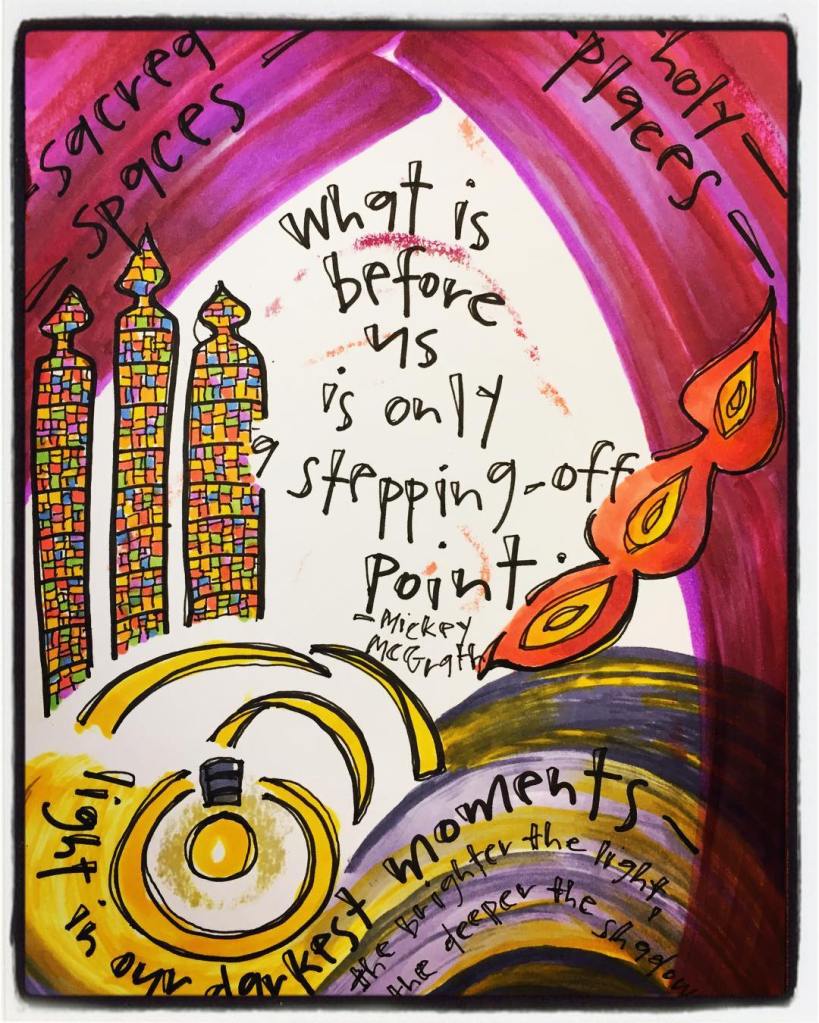 - sacred -
- spaces
- holy -
- places -
what is
before
us
is only
a stepping-off
point.
- Mickey
McGrath
light in our darkest moments -
the brighter the light
the deeper the shadow